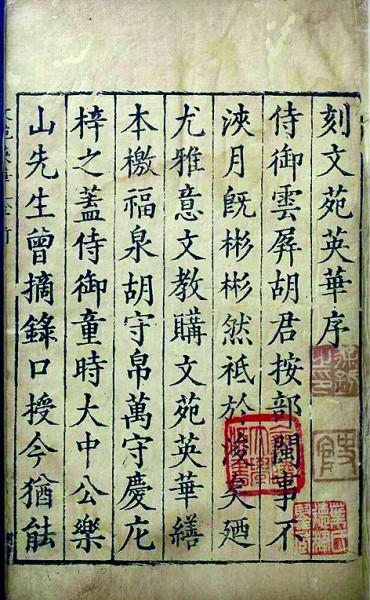 刻文苑英華序
侍御雲屏胡君按部閩事不
浹月旣彬彬然祗於浚矣廼
尤雅意文教購文苑英華繕
本檄福泉胡守帛萬守慶庀
梓之蓋侍御童時大中公樂
山先生曾摘錄口授今猶䏻